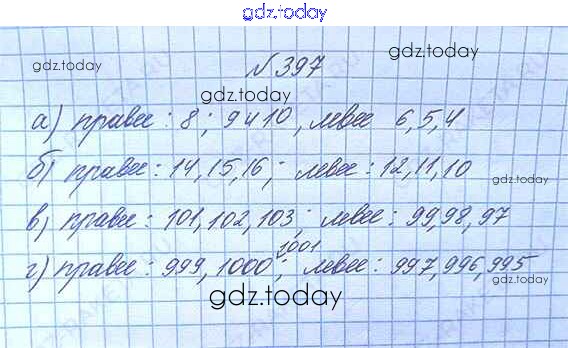 gdz.today
gdz.today
gdz.today
№ 397
gdz.today
а) правее : 8 ; 9 и 10 , левее 6, 5, 4
б) правее : 14, 15, 16 ; левее : 12, 11, 10
в) правее : 101, 102, 103 ; левее : 99, 98, 97
1001
г) правее : 999, 1000 ; левее : 997, 996, 995
gdz.today
gdz.today